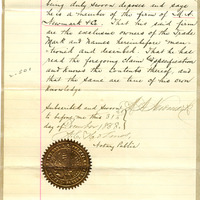 being duly sworn, deposes and says
he is a member of the firm of M. A.
Newmark & Co. That his said firm
are the exclusive owners of the Trade
Mark and Names hereinbefore men-
tioned and described. That he has
read the foregoing claim & specification
and knows the contents thereof, and
that the same are true of his own
knowledge
Subscribed and sworn
to before me this 31st
day of
Notary Public